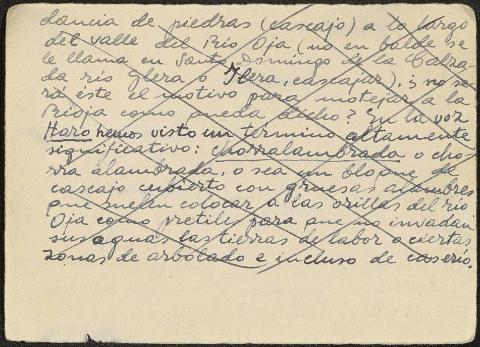 dancia de piedras (cascajo) a lo largo
del valle del Río Oja (no en balde se
le llama en Santo Domingo de la Calza-
da río glera o Ilera, cascajar), ¿ no se-
rá éste el motivo para motejar a la
Rioja como queda dicho? En la voz
Haro hemos visto un término altamente
significativo: chorralambrada o cho-
rra alambrada, o sea un bloque de
cascajo cubierto con gruesos alambres
que suelen colocar a las orillas del río
Oja como pretiles para que no invadan
sus aguas las tierras de labor o ciertas
zonas de arbolado e incluso de caserío.